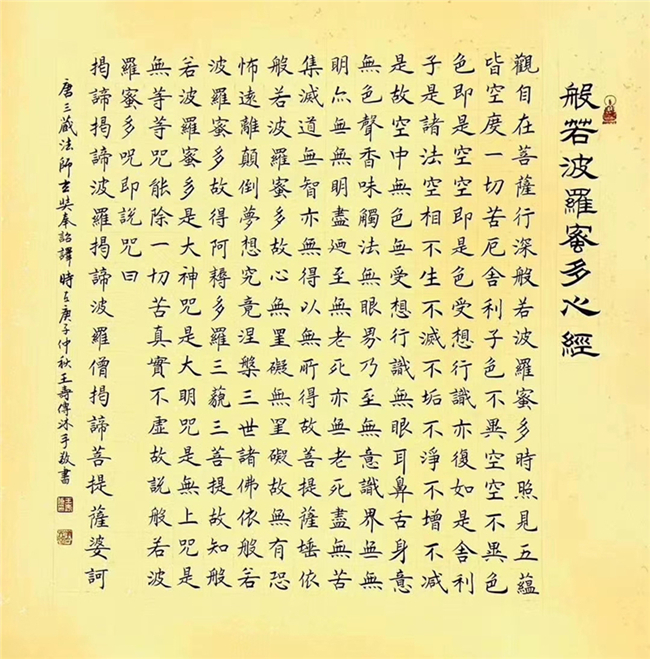 般若波羅蜜多心經
觀自在菩薩行深般若波羅蜜多時照見五蘊
皆空度一切苦厄舍利子色不異空空不異色
色即是空空即是色受想行識亦復如是舍利
子是諸法空相不生不滅不垢不淨不增不减
是故空中無色無受想行識無眼耳鼻舌身意
無色聲香味觸法無眼界乃至無意識界無無
明亦無無明盡廼至無老死亦無老死盡無苦
集滅道無智亦無得以無所得故菩提薩埵依
般若波羅蜜多故心無罣礙無罣礙故無有恐
怖遠離顛倒夢想究竟涅槃三世諸佛依般若
波羅蜜多故得阿耨多羅三藐三菩提故知般
若波羅蜜多是大神咒是大明咒是無上咒是
無等等咒能除一切苦真實不虛故説般若波
羅蜜多呪即説咒曰
揭諦揭諦波羅揭諦波羅僧揭諦菩提薩婆訶
唐三藏法師玄奘奉詔譯時在庚子仲秋王壽傳沐手敬書